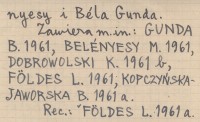 nyesy i Béla Gunda.
Zawiera m.in.: GUNDA
B. 1961, BELÉNYESY M. 1961,
DOBROWOLSKI K. 1961 b,
FÖLDES L. 1961, KOPCZYŃSKA-
JAWORSKA B. 1961 a.
Rec.: FÖLDES L. 1961 a.